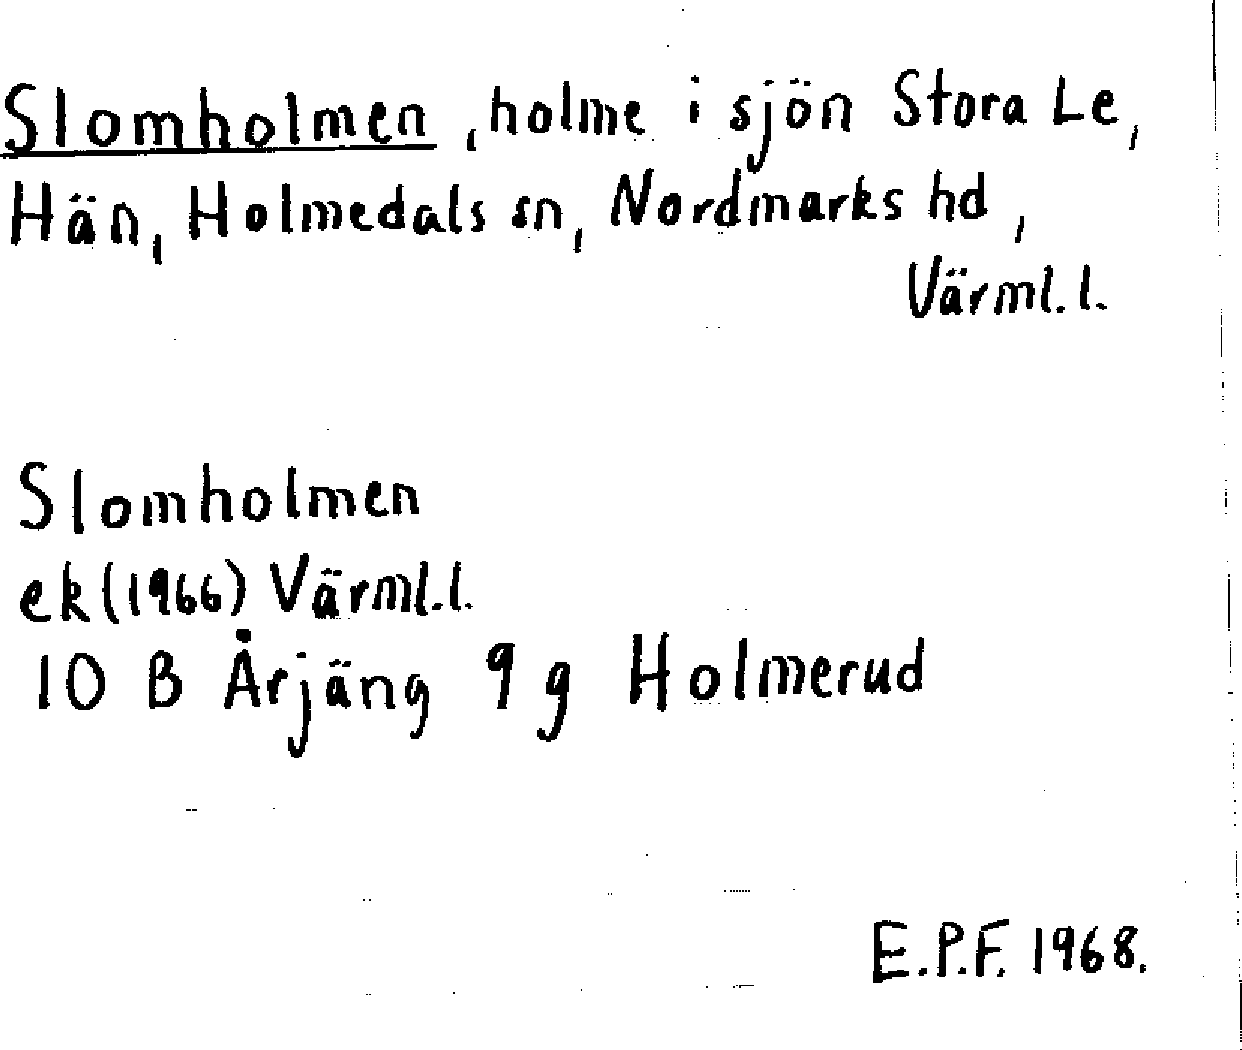 Slomholmen, holme i sjön Stora Le,
Hän, Holmedals sn, Nordmarks hd,
Värml. l.
Slomholmen
ek (1966) Värml. l.
10 B Årjäng 9 g Holmerud
E.P.F. 1968.